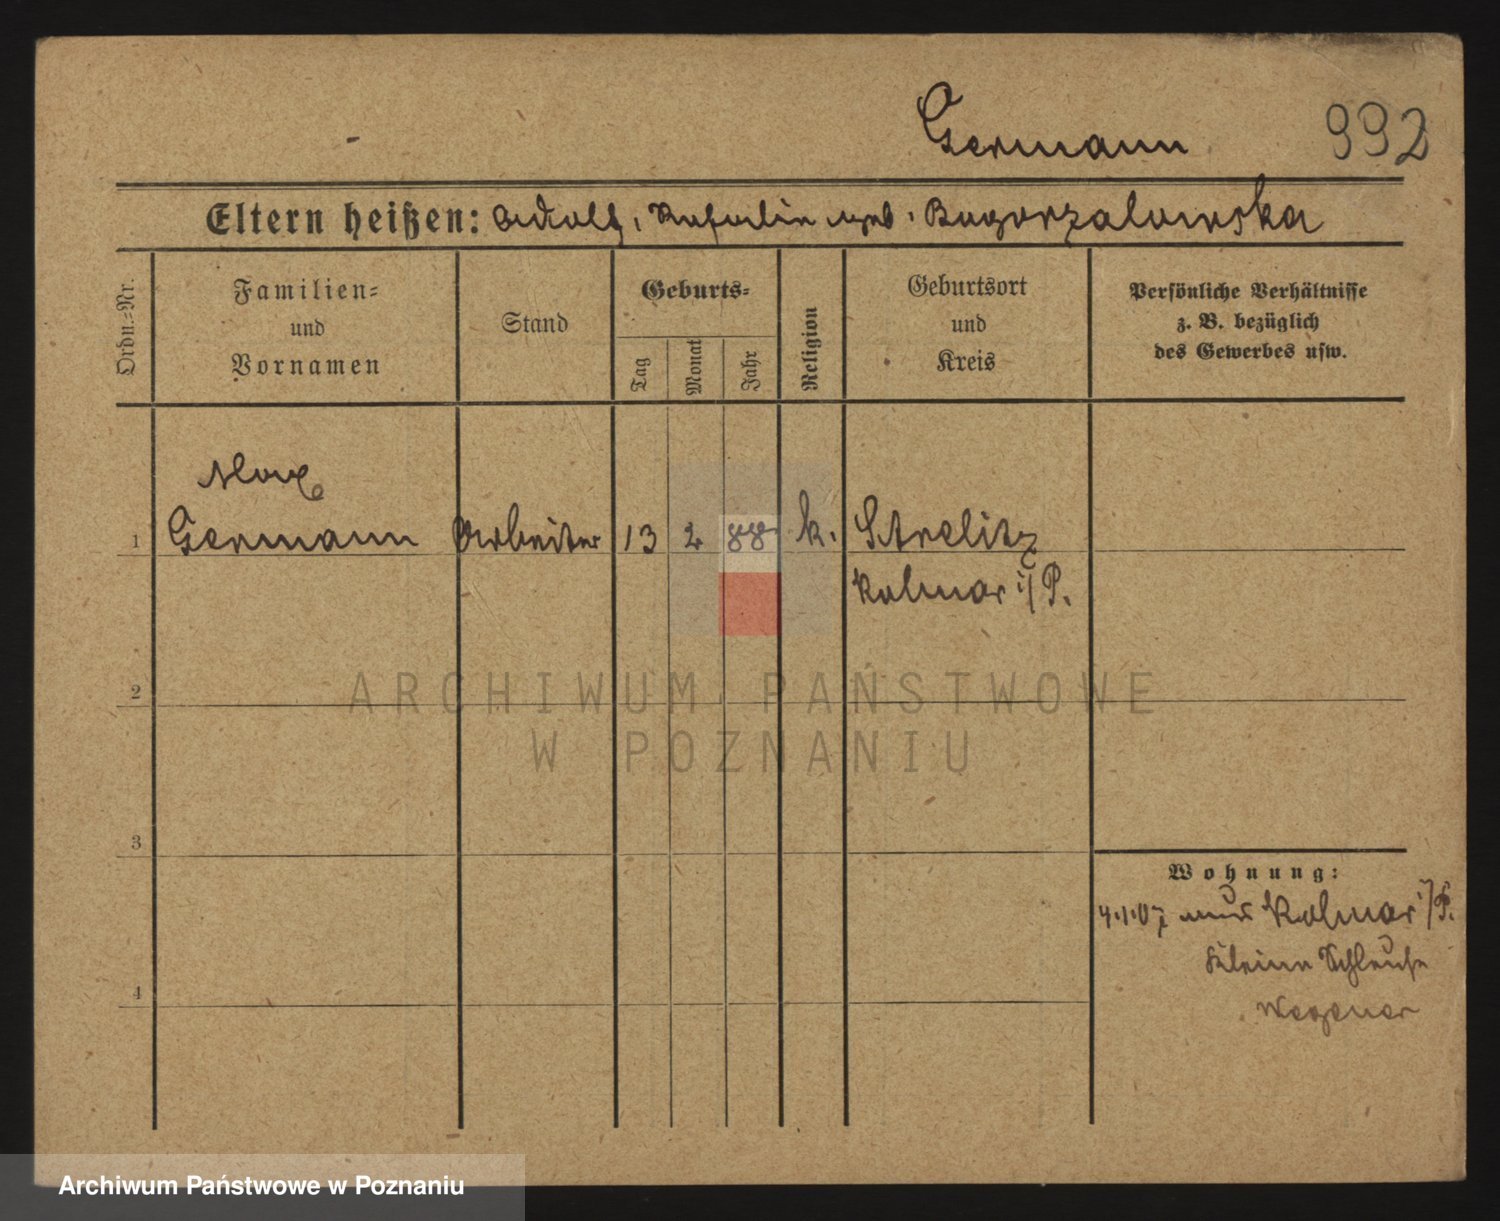 Germann 992
Eltern heißen: Adolf, geb. Bogorzalowska
Ordn.-Nr.
Familien-
und
Vornamen
Stand
Geburts-
Tag
Monat
Jahr
Religion
Geburtsort
und
Kreis
Persönliche Verhältnisse
z. B. bezüglich
des Gewerbes usw.
Max
1 Germann Arbeiter 13 2 88 k. Strelitz
Kolmar i/P.
2
3
4
Wohnung:
4.1.07 aus Kolmar i/P.
Kleine Schleuse
Wegener
ARCHIWUM PAŃSTWOWE
W POZNANIU
Archiwum Państwowe w Poznaniu